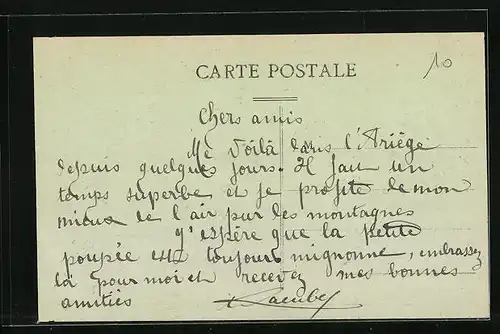 10
CARTE POSTALE
Chers amis
Me voilà dans l'Ariège
depuis quelques jours. Il fait un
temps superbe et je profite de mon
mieux de l'air pur des montagnes
J'espère que la petite
poupée est toujours mignonne, embrassez
la pour moi et recevez mes bonnes
amitiés